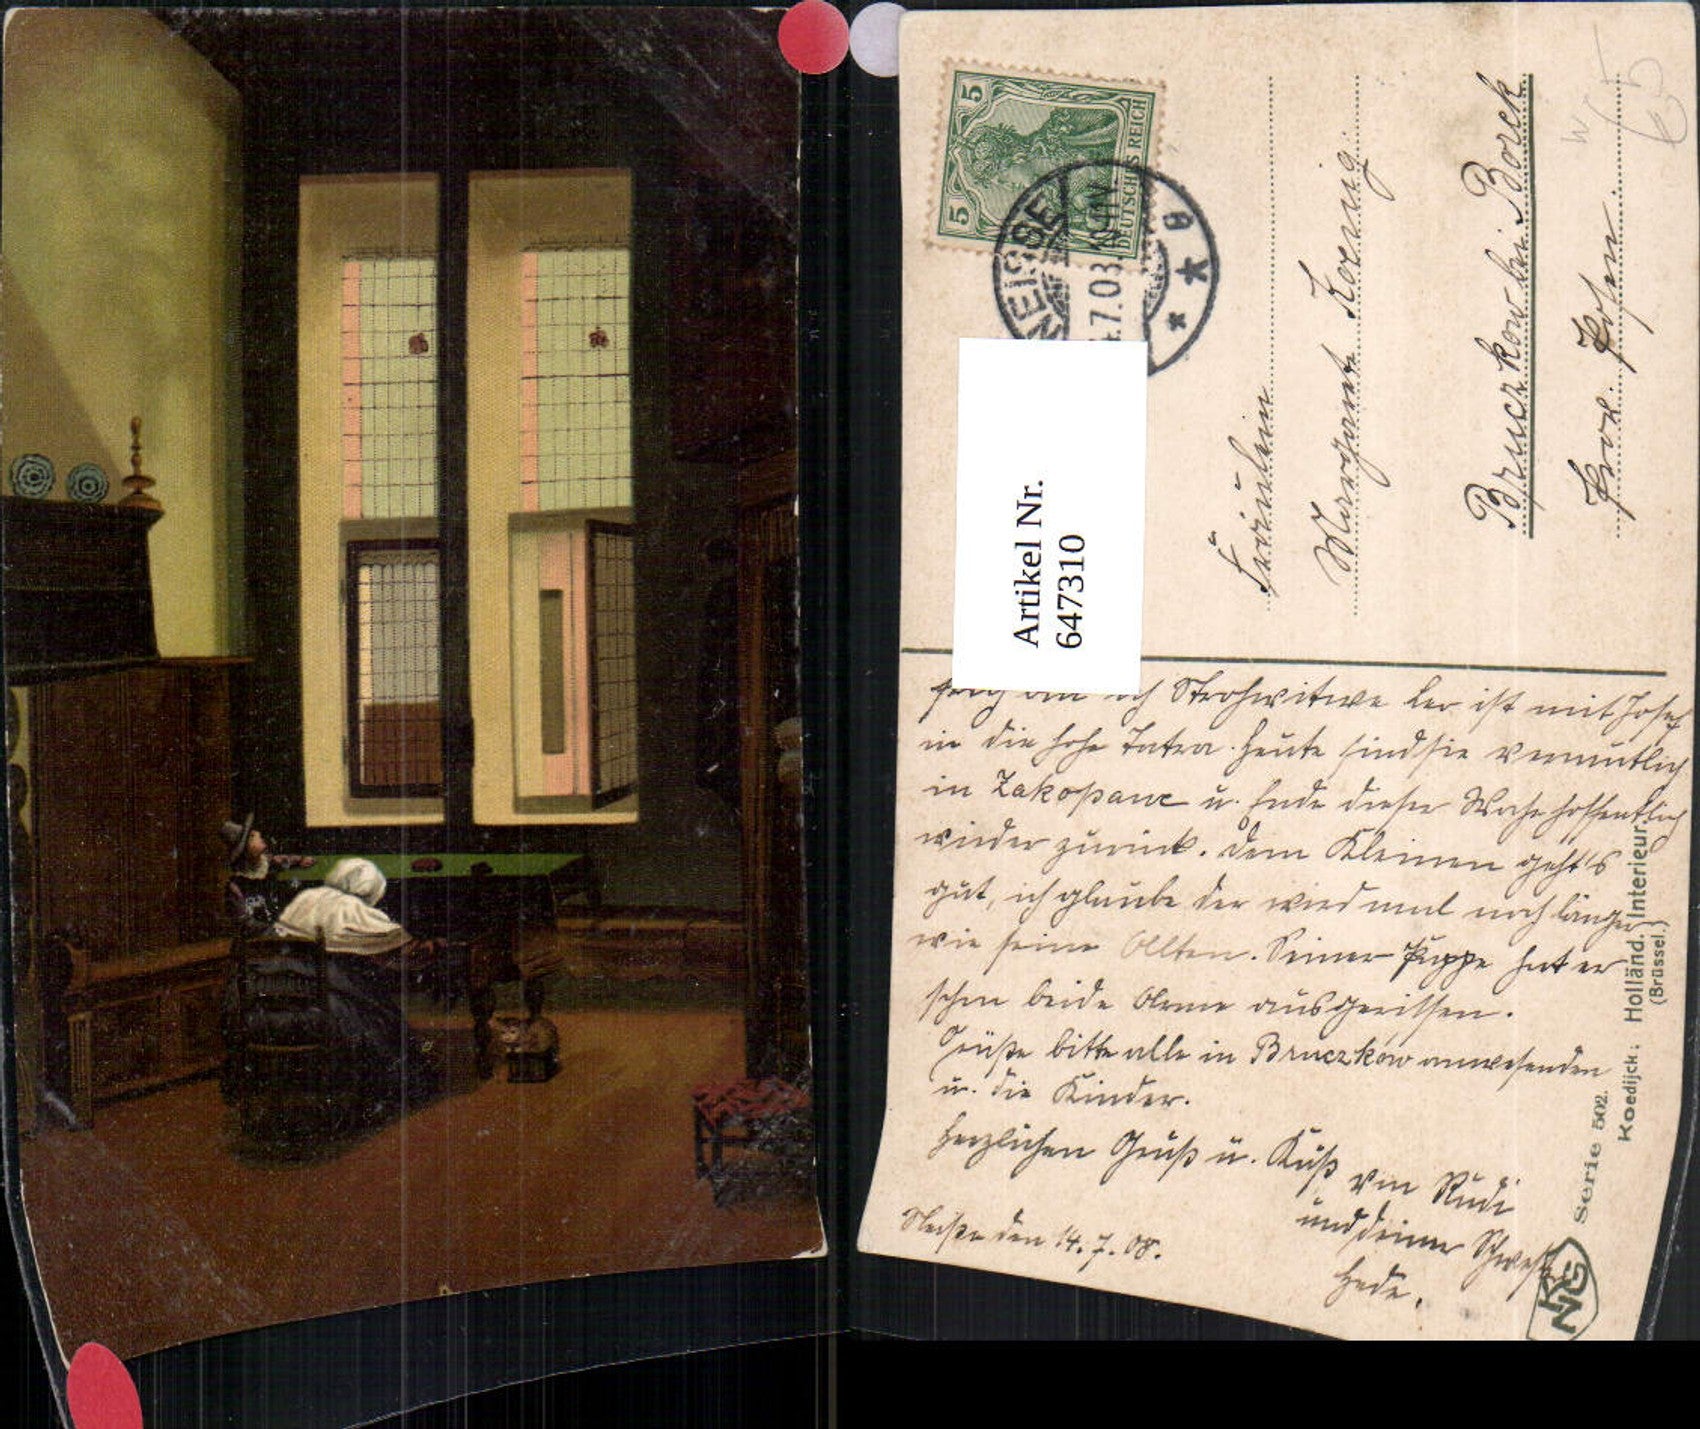 5
5
DEUTSCHES REICH
NEISSE
7.08.
Artikel Nr.
647310
Fräulein
Margarete Koenig
Bruczkow bei Borek
Prov. Posen.
65
bin ich Strohwitwe Leo ist mit Josef
in die hohe Tatra. Heute sind sie vermutlich
in Zakopane u. Ende dieser Woche hoffentlich
wieder zurück. Dem Kleinen geht's
gut, ich glaube der wird mal noch länger
wie seine Alten. Seiner Puppe hat er
schon beide Arme ausgerissen.
Grüße bitte alle in Bruczkow anwesenden
u. die Kinder.
Herzlichen Gruß u. Kuß von Rudi
und Deiner Schwester
Hede.
Neisse den 14.7.08.
Koedijck: Holländ. Interieur
(Brüssel.)
Serie 502.